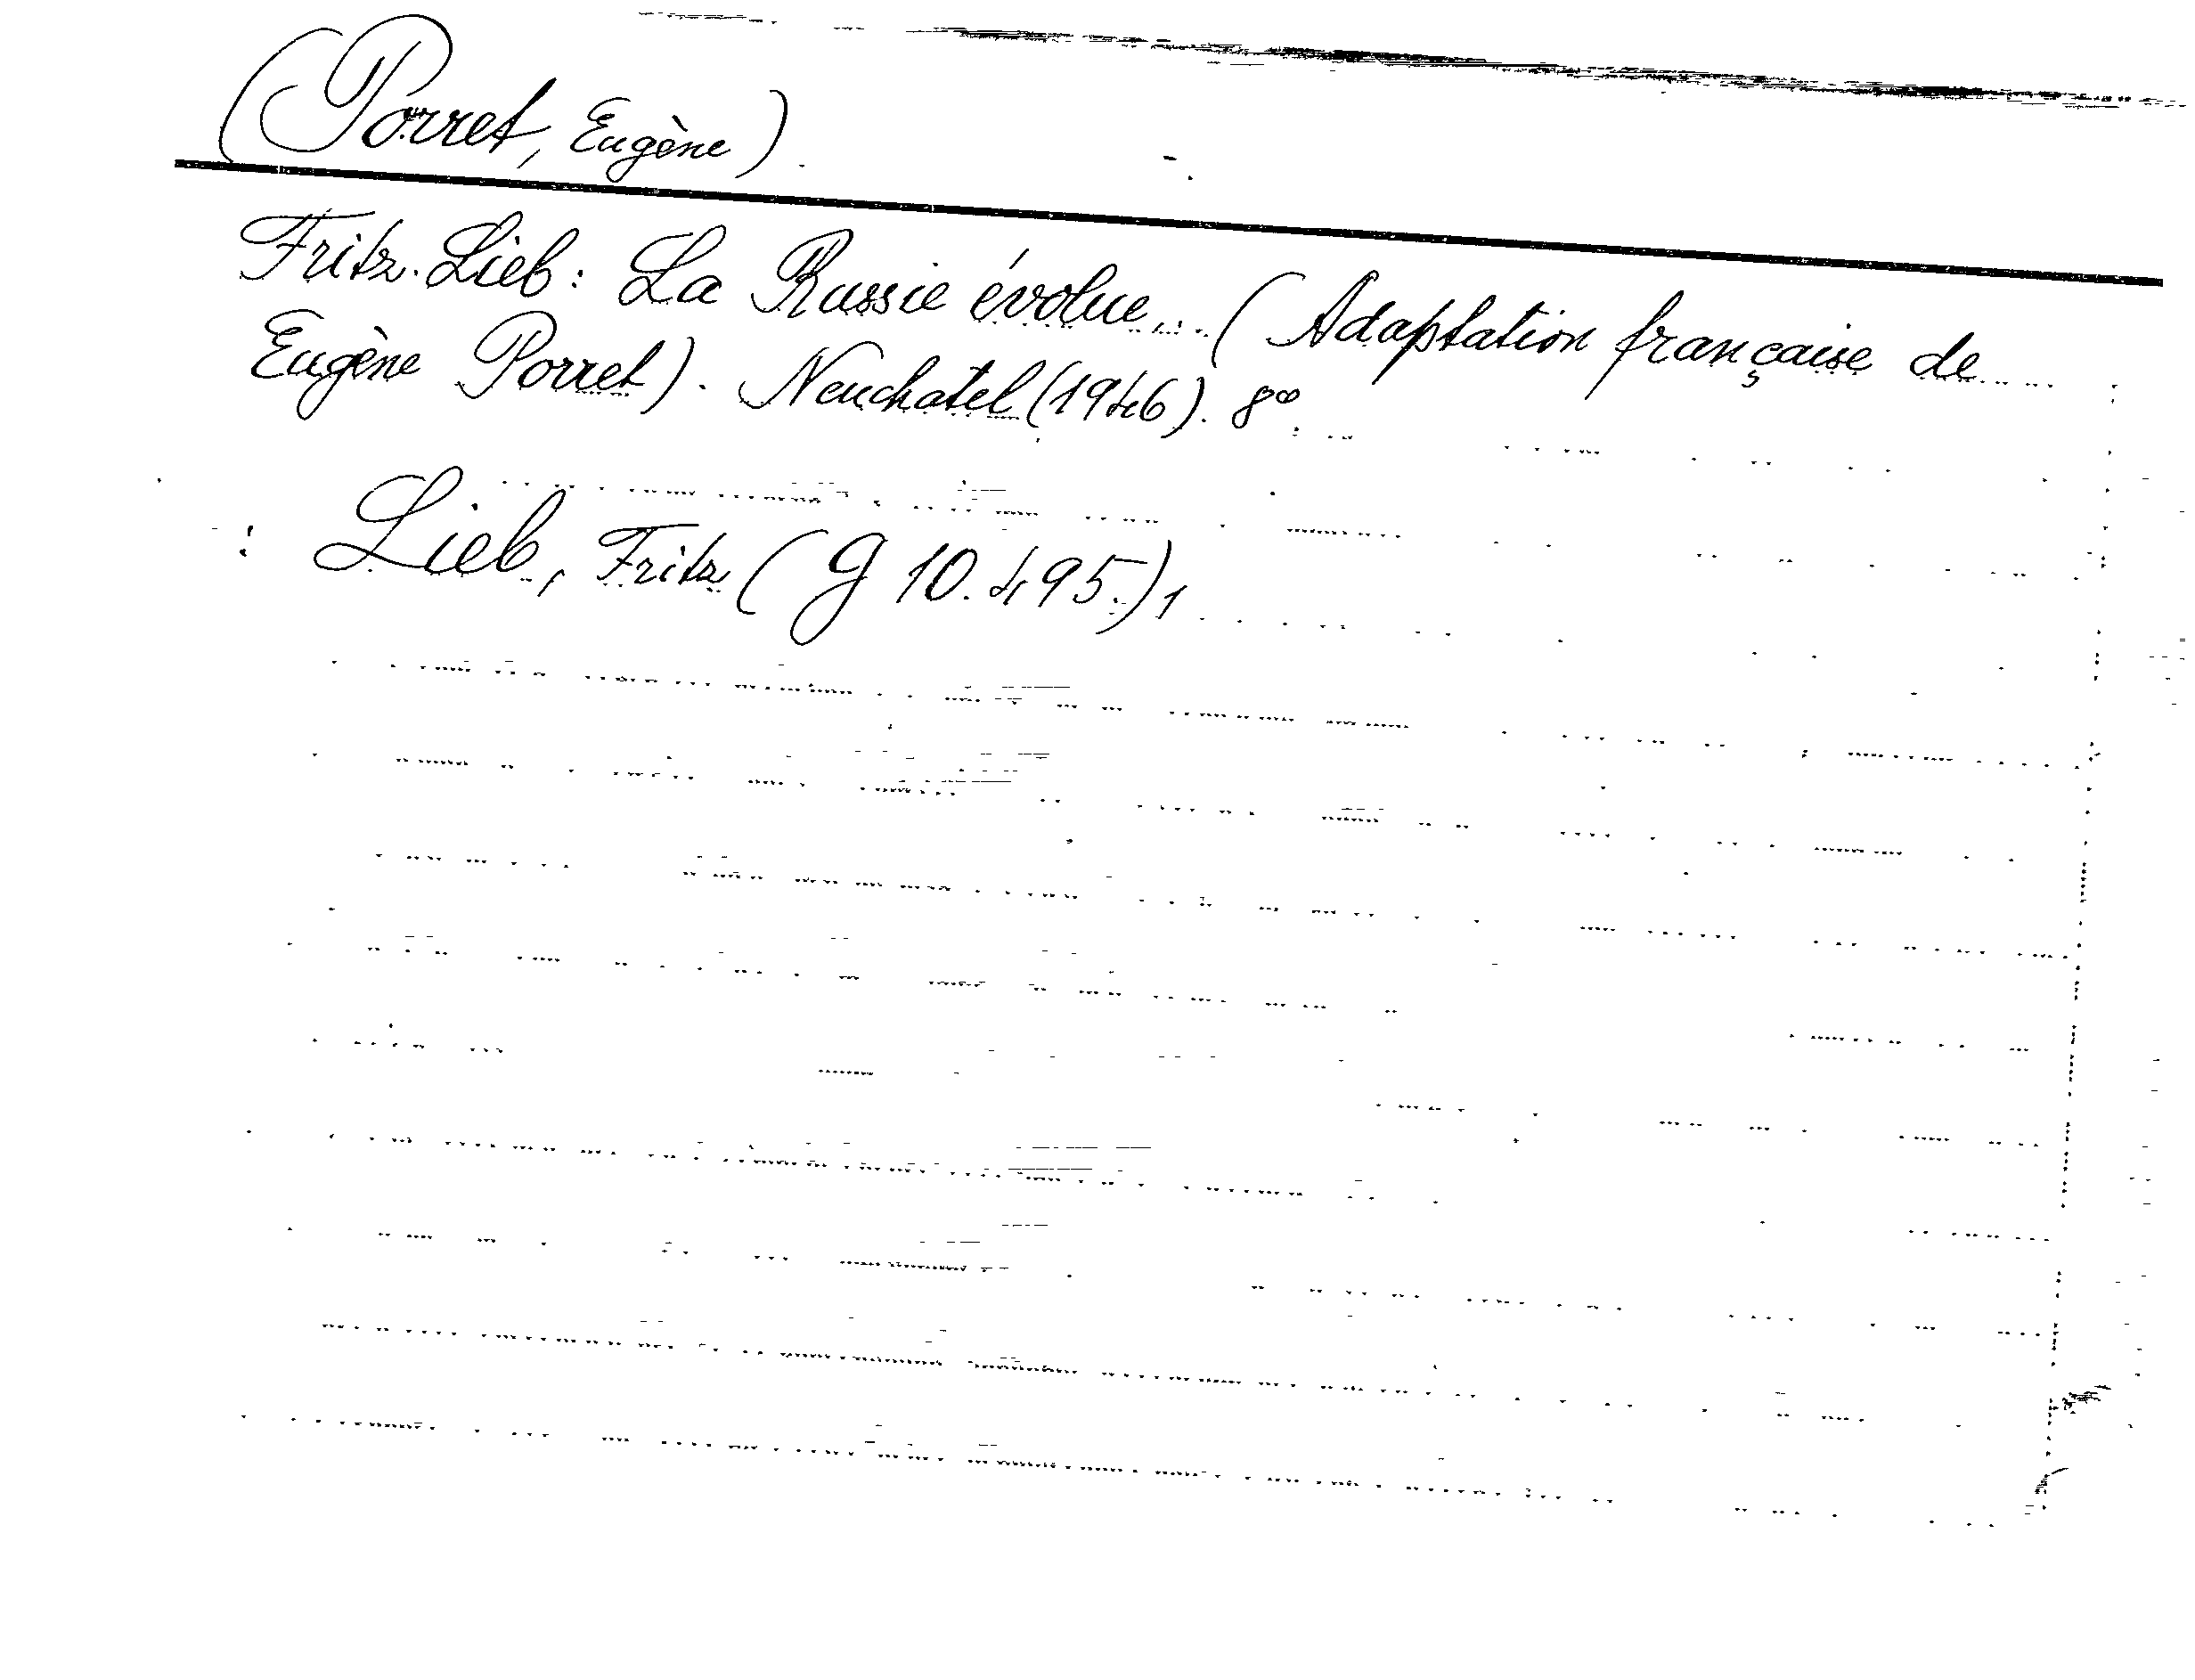 (Porret, Eugène)
Fritz Lieb: La Russie évolue... (Adaptation française de
Eugène Porret). Neuchatel (1946). 8°
: Lieb, Fritz (G 10.495.) 1